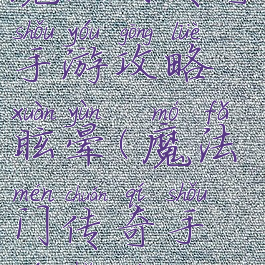 shǒu yóu gōng lüè
手游攻略
xuàn yūn mó fǎ
眩晕(魔法
mén chuán qí shǒu
门传奇手